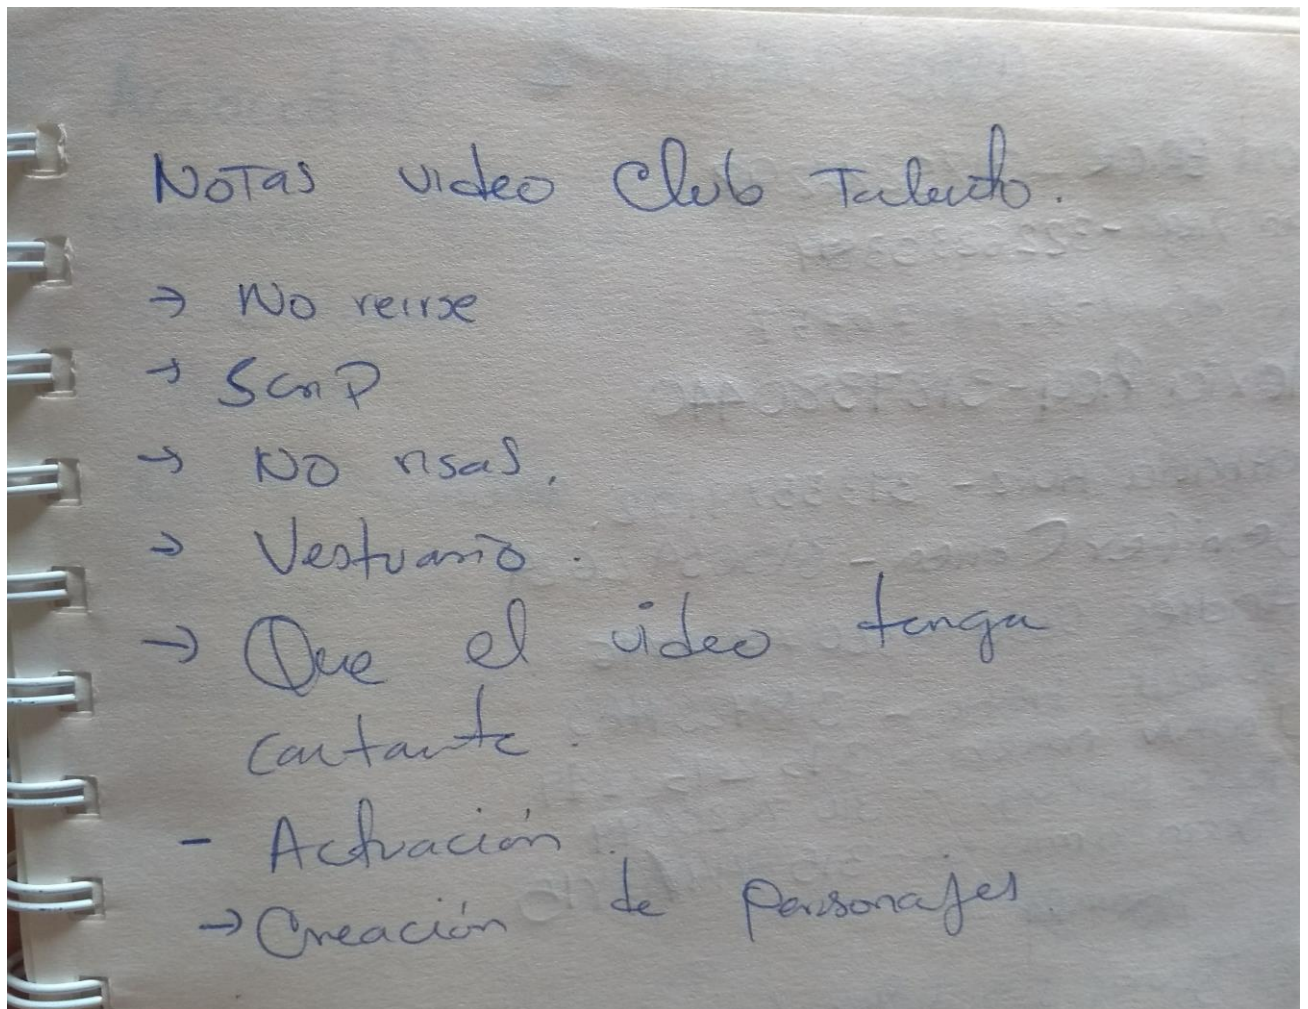 NOTAS video Club Talento.
→ No reirse
→
→ NO risas.
→ Vestuario.
→ Que el video tenga
cantante.
- Actuación
→ Creación de personajes